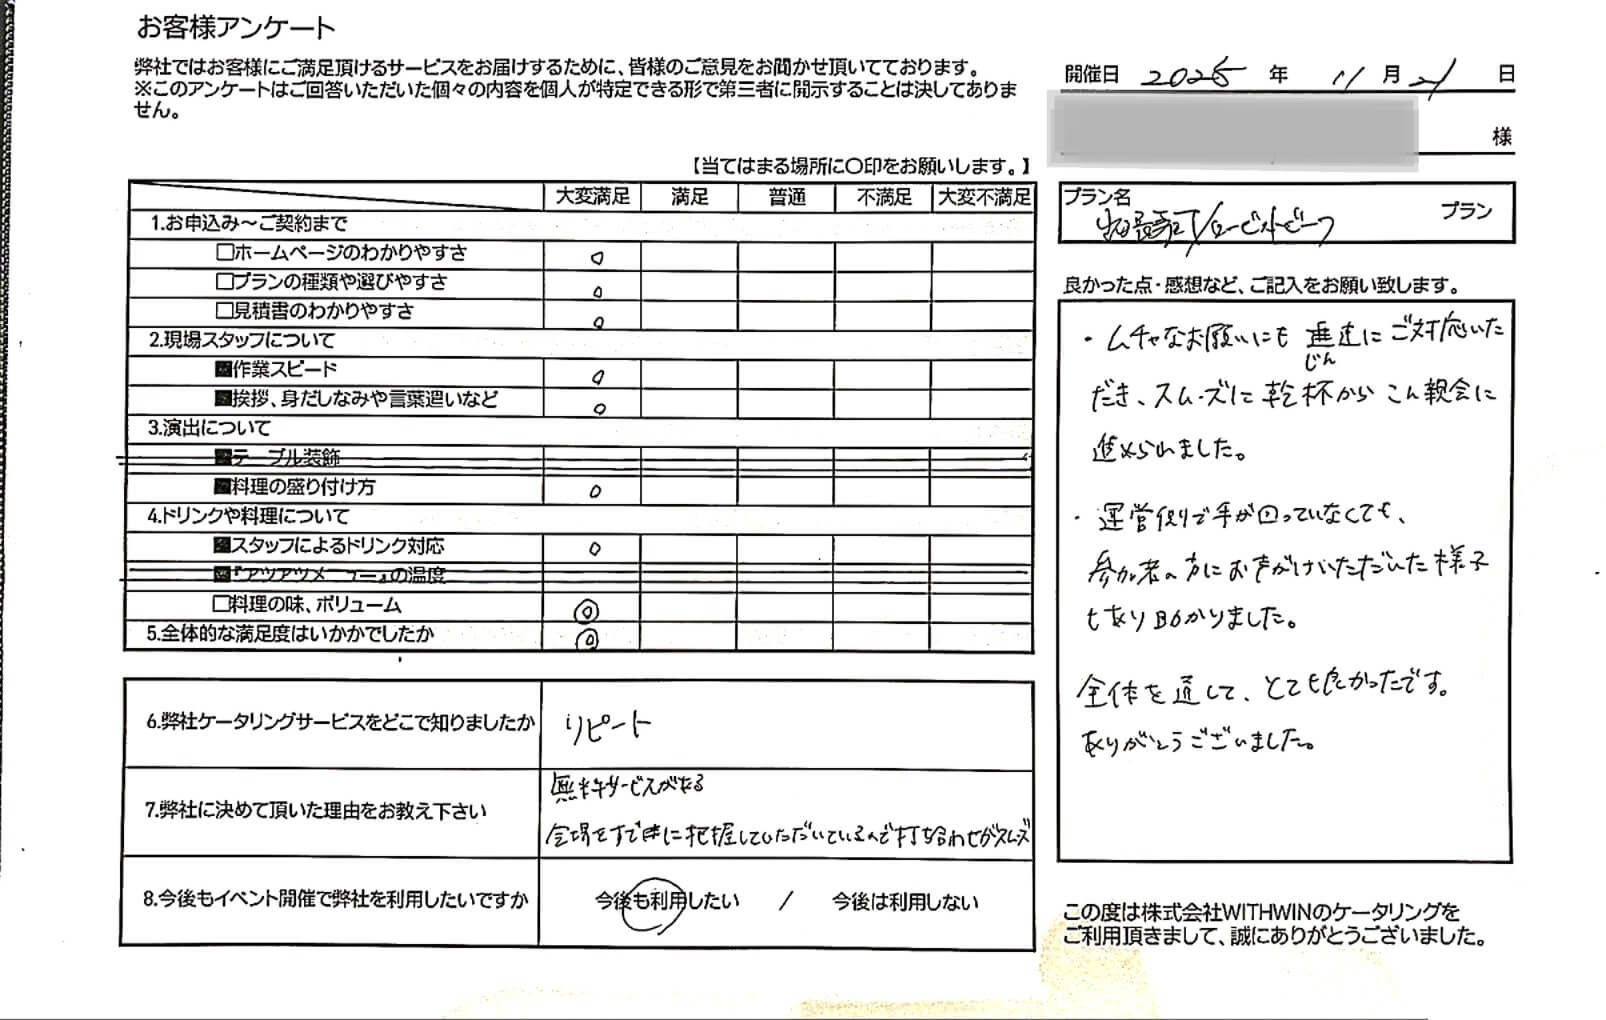 お客様アンケート
弊社ではお客様にご満足頂けるサービスをお届けするために、皆様のご意見をお聞かせ頂いてております。
※このアンケートはご回答いただいた個々の内容を個人が特定できる形で第三者に開示することは決してありま
せん。
開催日 2025 年 11 月 21 日
様
【当てはまる場所に〇印をお願いします。】
大変満足 満足 普通 不満足 大変不満足
1.お申込み～ご契約まで
□ホームページのわかりやすさ ○
□プランの種類や選びやすさ ○
□見積書のわかりやすさ ○
2.現場スタッフについて
■作業スピード ○
■挨拶、身だしなみや言葉遣いなど ○
3.演出について
■テーブル装飾
■料理の盛り付け方 ○
4.ドリンクや料理について
■スタッフによるドリンク対応 ○
■『アツアツメニュー』の温度
□料理の味、ボリューム ◎
5.全体的な満足度はいかかでしたか ◎
6.弊社ケータリングサービスをどこで知りましたか リピート
7.弊社に決めて頂いた理由をお教え下さい
無料サービスがある
会場をすでに把握していただいているので打ち合わせがスムーズ
8.今後もイベント開催で弊社を利用したいですか 今後も利用したい / 今後は利用しない
プラン名
/ローストビーフ プラン
良かった点・感想など、ご記入をお願い致します。
・ムチャなお願いにも 速にご対応いた
じん
だき、スムーズに乾杯から こん親会に
進められました。
・運営側で手が回っていなくても、
参加者の方にお声がけいただいた様子
もあり助かりました。
全体を通して、とても良かったです。
ありがとうございました。
この度は株式会社WITHWINのケータリングを
ご利用頂きまして、誠にありがとうございました。